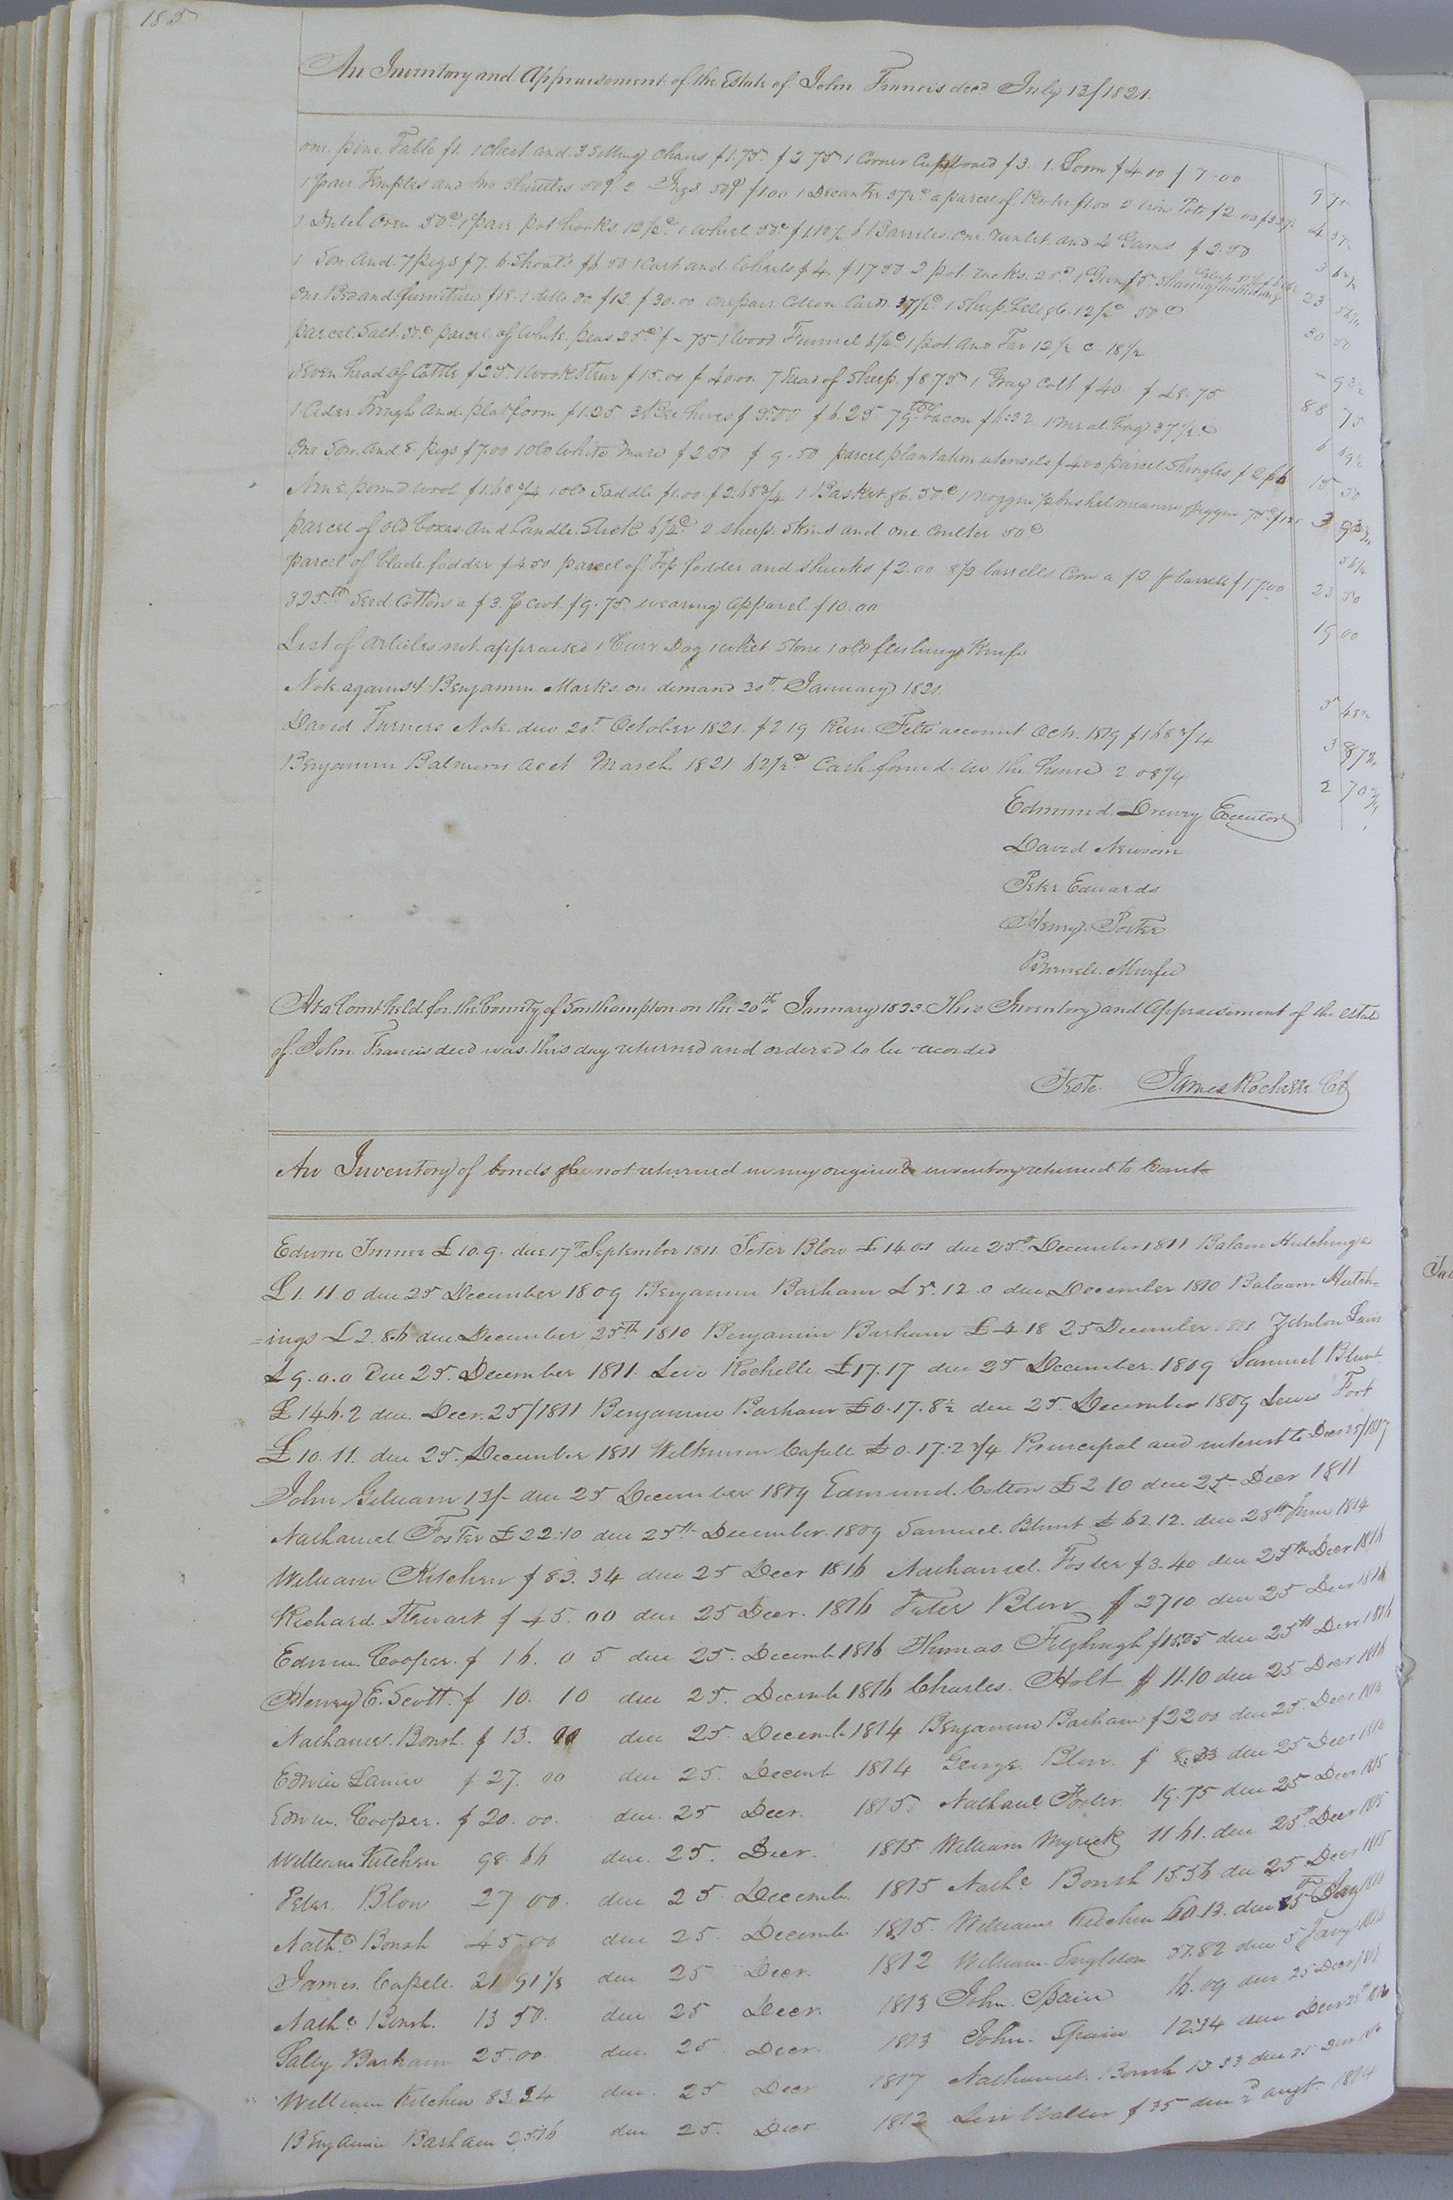 185
An Inventory and Appraisement of the Estate of John Francis decd July 13/1821.
one pine Table $1. 1 chest and 3 Setting chairs $1.75 $2 75 1 Corner Cupboard $3. 1. Loom $4 00 $ 7.00
9 75
1 pair Temples and two Shuttles 50c 2 Jugs 50c $1.00 1 Decanter 37½c a parcel of Pewter $1.00 2 iron Pots $2 00 $3 37½
4 37½
1 Dutch Oven 50c 1 pair pot hooks 12½c 1 wheel 50c $1.12½ 6 Barreles one runlet and 2 Gums $2.50
3 62½
1 Sow and 7 pigs $7. 6 Shoats $6 50 1 Cart and Wheels $4 $17 50 2 pot racks 25c 1 Gun $5 Shaving instruments
23 56¼
One Bed and furniture $18. 1 ditto do $12 $30.00 one pair Cotton Cards 37½c 1 Sheep Bell &c 12½c 50c
30 50
parcel Salt 50c parcel of white peas 25c $ - 75 1 wood Funnel 6¼c 1 pot and Tar 12½ c 18½
- 93½
Seven head of Cattle $25. 1 work Steer $15.00 $40.00 7 head of Sheep $8 75 1 Gray Colt $40. $48.75
88 75
1 Cider Trough and platform $1.25 3 Bee hives $5.00 $6.25 79 lb bacon $6:32 1 meal bag 37½c
6 69½
One Sow and 5 pigs $7.00 1 old white mare $2 50 $9.50 parcel plantation utensils $4 00 parcel Shingles $2 $6
15 50
Nine pound wool $1.68¾ 1 old Saddle $1.00 $2.68¾ 1 Basket &c 50c 1 noggin ½ bushel measure piggin 75c $1.25
3 93¾
parcel of old boxes and Candle Stick 6¼c 2 sheep Skins and one Coulter 50c
56¼
parcel of blade fodder $4 50 parcel of Top fodder and shucks $2.00 8½ barrells Corn a $2 p barrell $17.00
23 50
325 lb Seed Cotton a $3. p cwt $9.75 wearing apparel $10.00
19 00
List of articles not appraised 1 Curr Dog 1 whet Stone 1 old fleshing Knife
Note against Benjamin Marks on demand 30th January 1821.
5 48½
David Turners Note due 20t October 1821 $2 19 Felts account Octr. 1819 $1 68¾
3 87¾
Benjamin Balmers acct March 1821 62½c Cash found in the house 2 08¼
2 70¾
Edmund Drewry Executor
David Newsom
Peter Edwards
Henry Porter
Burwell Murfee
At a Court held for the County of Southampton on the 20th January 1823 This Inventory and Appraisement of the estate
of John Francis decd was this day returned and ordered to be recorded
Teste James Rochelle Ct
An Inventory of bonds &c not returned in my original inventory returned to Court
Edwin Turner £10.9. due 17th September 1811 Peter Blow £14.0.1 due 25th December 1811 Balam Hutchings
£1.11.0 due 25 December 1809 Benjamin Barham £5.12.0 due December 1810 Balaam Hutch-
-ings £2.8.6 due December 25th 1810 Benjamin Barham £4 18 25 December 1811 Zebulon Lain
£9.0.0 Due 25. December 1811. Levi Rochelle £17.17 due 25 December 1809 Samuel Blunt
£14 6.2 due Decr. 25/1811 Benjamin Barham £0.17.8½ due 25 December 1809 Lewis Fort
£10.11. due 25. December 1811 Wilkinson Capell £0.17.2¾ Principal and interest to Decr 25/1817
John Gilliam 15/- due 25 December 1809 Edmund Cotton £2 10 due 25 Decr 1811
Nathaniel Foster £22.10 due 25th December 1809 Samuel Blunt £62.12. due 28th June 1814
William Kitchen $83.34 due 25 Decr 1816 Nathaniel Foster $3.40 due 25th Decr 1816
Richard Stewart $45.00 due 25 Decr. 1816 Peter Blow $2710 due 25 Decr 1816
Edwin Cooper $16.05 due 25. Decemb 1816 Thomas Fitzhugh $18.35 due 25th Decr 1816
Henry E. Scott $10.10 due 25. Decemb 1816 Charles Holt $11.10 due 25 Decr 1816
Nathaniel Bonsh. $13.00 due 25. Decemb 1814 Benjamin Barham $22 00 due 25. Decr 1814
Edwin Lanier $27.00 due 25. Decemb 1814 George Blow $8.33 due 25 Decr 1816
Edwin Cooper. $20.00. due 25 Decr. 1815. Nathanl Foster 19.75 due 25 Decr 1815
William Kitchen 98.66 due 25. Decr. 1815 William Myrick 11 61. due 25th Decr 1815
Peter Blow 27 00. due 25 Decemb. 1815 Nathl Bonsh 15.56 due 25 Decr 1815
Nathl Bonsh 45.00 due 25 Decemb 1815. William Kitchen 60.13. due 25th
James Capell 21 91⅓ due 25 Decr. 1812 William Singleton 57.82 due 5 Jany 1816
Nathl Bonsh. 13 50. due 25 Decr. 1813 John Spain 16.09 due 25 Decr
Sally Barham 25.00. due 25 Decr. 1813 John Spain 12:34 due Decr 25th
William Kitchen 83.34 due 25 Decr 1817 Nathaniel Bonsh 13.33 due 25 Decr
Benjamin Barham 25.16 due 25. Decr. 1812 Levi Waller $35 due 2d augt 1814